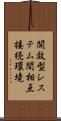 開放型シス
テム間相互
接続環境